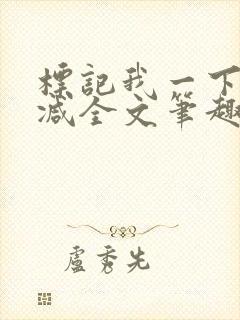 標記我一下
减全文笔趣
盧秀先